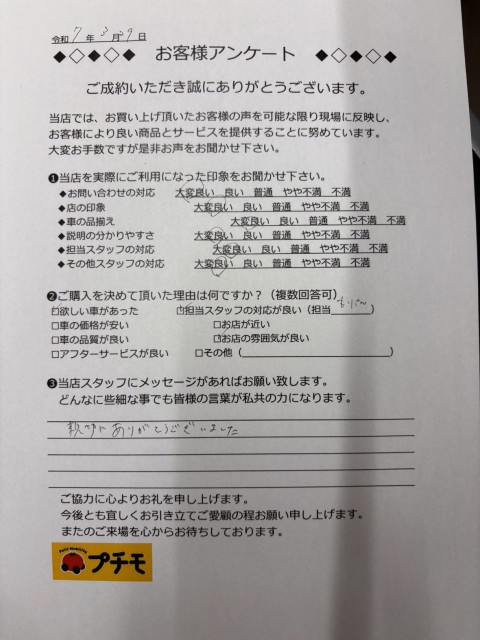 令和 7 年 3 月 29 日
◆◇◆◇◆ お客様アンケート ◆◇◆◇◆
ご成約いただき誠にありがとうございます。
当店では、お買い上げ頂いたお客様の声を可能な限り現場に反映し、
お客様により良い商品とサービスを提供することに努めています。
大変お手数ですが是非お声をお聞かせ下さい。
❶当店を実際にご利用になった印象をお聞かせ下さい。
◆お問い合わせの対応 大変良い 良い 普通 やや不満 不満
◆店の印象 大変良い 良い 普通 やや不満 不満
◆車の品揃え 大変良い 良い 普通 やや不満 不満
◆説明の分かりやすさ 大変良い 良い 普通 やや不満 不満
◆担当スタッフの対応 大変良い 良い 普通 やや不満 不満
◆その他スタッフの対応 大変良い 良い 普通 やや不満 不満
❷ご購入を決めて頂いた理由は何ですか？（複数回答可）
□欲しい車があった □担当スタッフの対応が良い（担当 ）
□車の価格が安い □お店が近い
□車の品質が良い □お店の雰囲気が良い
□アフターサービスが良い □その他（ ）
❸当店スタッフにメッセージがあればお願い致します。
どんなに些細な事でも皆様の言葉が私共の力になります。
親切にありがとうございました
ご協力に心よりお礼を申し上げます。
今後とも宜しくお引き立てご愛顧の程お願い申し上げます。
またのご来場を心からお待ちしております。
Petit Mobility
プチモ